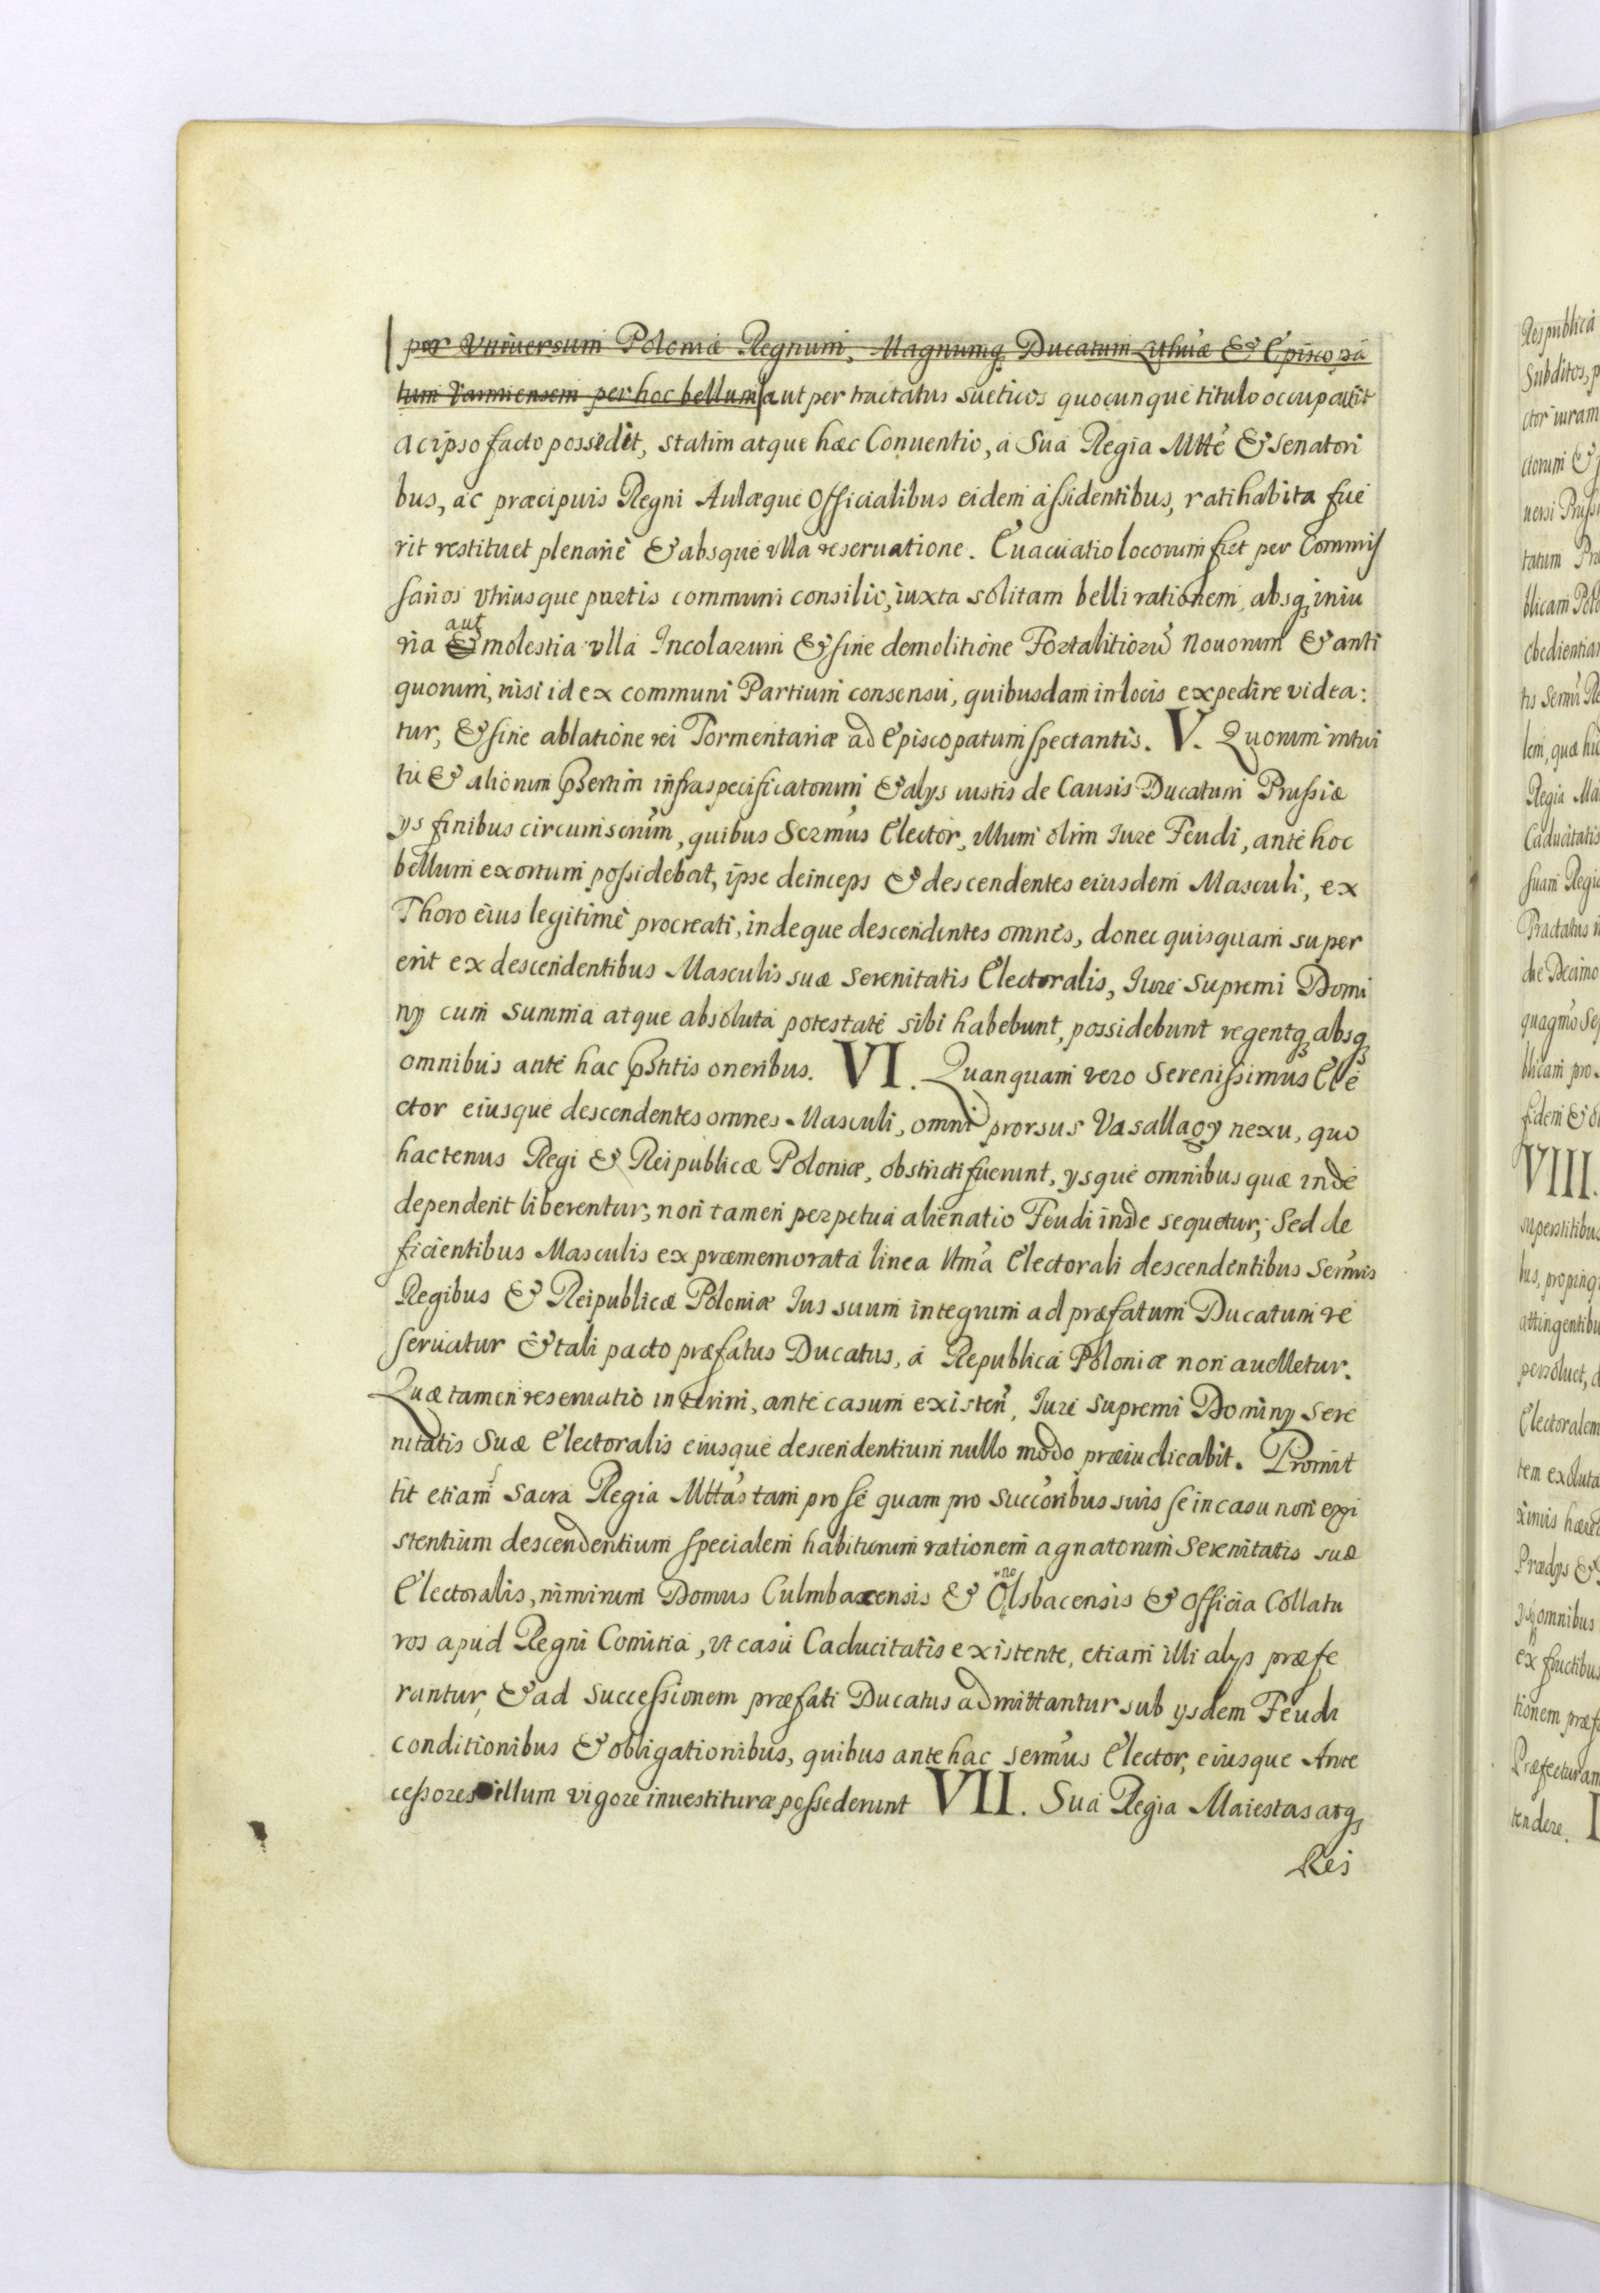 per Vniuersum Poloniæ Regnum, Magnumq Ducatum Lithuæ & Episcopa
tum Varmiensem per hoc bellum aut per tractatus sueticos quocunque titulo occupauit
ac ipso facto possedit, statim atque hæc Conuentio, a Sua Regia Mtte & Senatori
bus, ac præcipuis Regni Aulæque Officialibus eidem assidentibus, ratihabita fue
rit restituet plenarie & absque vlla reseruatione. Euacuatio locorum fiet per Commis
sarios vtriusque partis communi consilio, iuxta solitam belli rationem, absq iniu
ria & aut molestia vlla Incolarum & sine demolitione Fortalitiorū Nouorum & anti
quorum, nisi id ex communi Partium consensu, quibusdam in locis expedire videa:
tur, & sine ablatione rei Tormentariæ ad Episcopatum spectantis. V. Quorum intui
tu & aliorum pßertim infraspecificatorum & alys iustis de Causis Ducatum Prussiæ
ys finibus circumscrūm, quibus Sermus Elector, illum olim Iure Feudi, ante hoc
bellum exortum possidebat, ipse deinceps & descendentes eiusdem Masculi, ex
Thoro eius legitime procreati, indeque descendentes omnes, donec quisquam super
erit ex descendentibus Masculis suæ Serenitatis Electoralis, Iure Supremi Domi
ny cum Summa atque absoluta potestate sibi habebunt, possidebunt regentq absq
omnibus ante hac pßtitis oneribus. VI. Quanquam vero Serenissimus Ele
ctor eiusque descendentes omnes Masculi, omni prorsus Vasallagy nexu, quo
hactenus Regi & Reipublicæ Poloniæ, obstricti fuerunt, ysque omnibus quæ inde
dependent liberentur, non tamen perpetua alienatio Feudi inde sequetur, Sed de
ficientibus Masculis ex præmemorata linea Utma Electorali descendentibus Sermis
Regibus & Reipublicæ Poloniæ Ius suum integrum ad præfatum Ducatum re
seruatur & tali pacto præfatus Ducatus, a Republica Poloniæ non auelletur.
Quæ tamen reseruatio interim, ante casum existen, Iure Supremi Dominy Sere
nitatis Suæ Electoralis eiusque descendentium nullo modo præiudicabit. Promit
tit etiam Sacra Regia Mttas tam pro se quam pro Succoribus suis se in casu non exi
stentium descendentium specialem habiturum rationem agnatorum Serenitatis suæ
Electoralis, nimirum Domus Culmbacensis & Olsbacensis & officia Collatu
ros apud Regni Comitia, vt casu Caducitatis existente, etiam illi alys præfe
rantur, & ad Successionem præfati Ducatus admittantur sub ysdem Feudi
conditionibus & obligationibus, quibus antehac Sermus Elector, eiusque Ante
cessores illum vigore inuestituræ possederunt VII. Sua Regia Maiestas atq
Rei
Respublica
Subditos, p
ctor iuram
ctorum &
uersi Prussi
tatum Pra
blicam Polo
obedientiam
tis Sermi Re
lem, quæ hu
Regia Ma
Caducitatis
suam Regia
Tractatus i
die Decimo
quagmo Sep
blicam pro
fidem & o
VIII.
superstitibus
bus, propinqu
attingentibu
persoluet, d
Electoralem
tem exoluta
ximis hæred
Prædys &
ysq omnibus
ex fructibus
tionem præf
Præfecturam
tendere. I